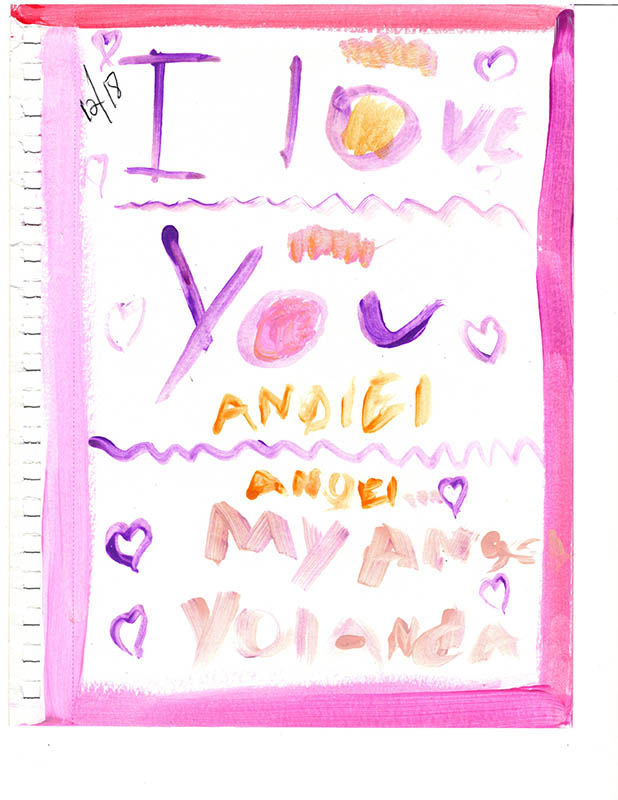 12/18
I lOVE
YOU
ANDIEI
ANGEI...
MY ANG
YOlANDA